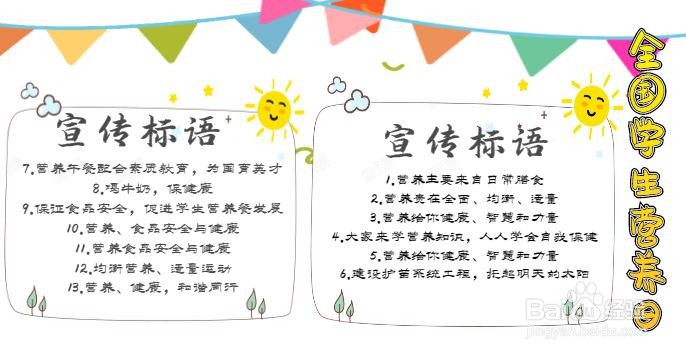 全国学生营养日
宣传标语
7.营养午餐配合素质教育，为国育英才
8.喝牛奶，保健康
9.保证食品安全，促进学生营养餐发展
10.营养、食品安全与健康
11.营养食品安全与健康
12.均衡营养、适量运动
13.营养、健康，和谐同行
宣传标语
1.营养主要来自日常膳食
2.营养贵在全面、均衡、适量
3.营养给你健康、智慧和力量
4.大家来学营养知识，人人学会自我保健
5.营养给你健康、智慧和力量
6.建设护苗系统工程，托起明天的太阳
Baidu经验
jingyan.baidu.com